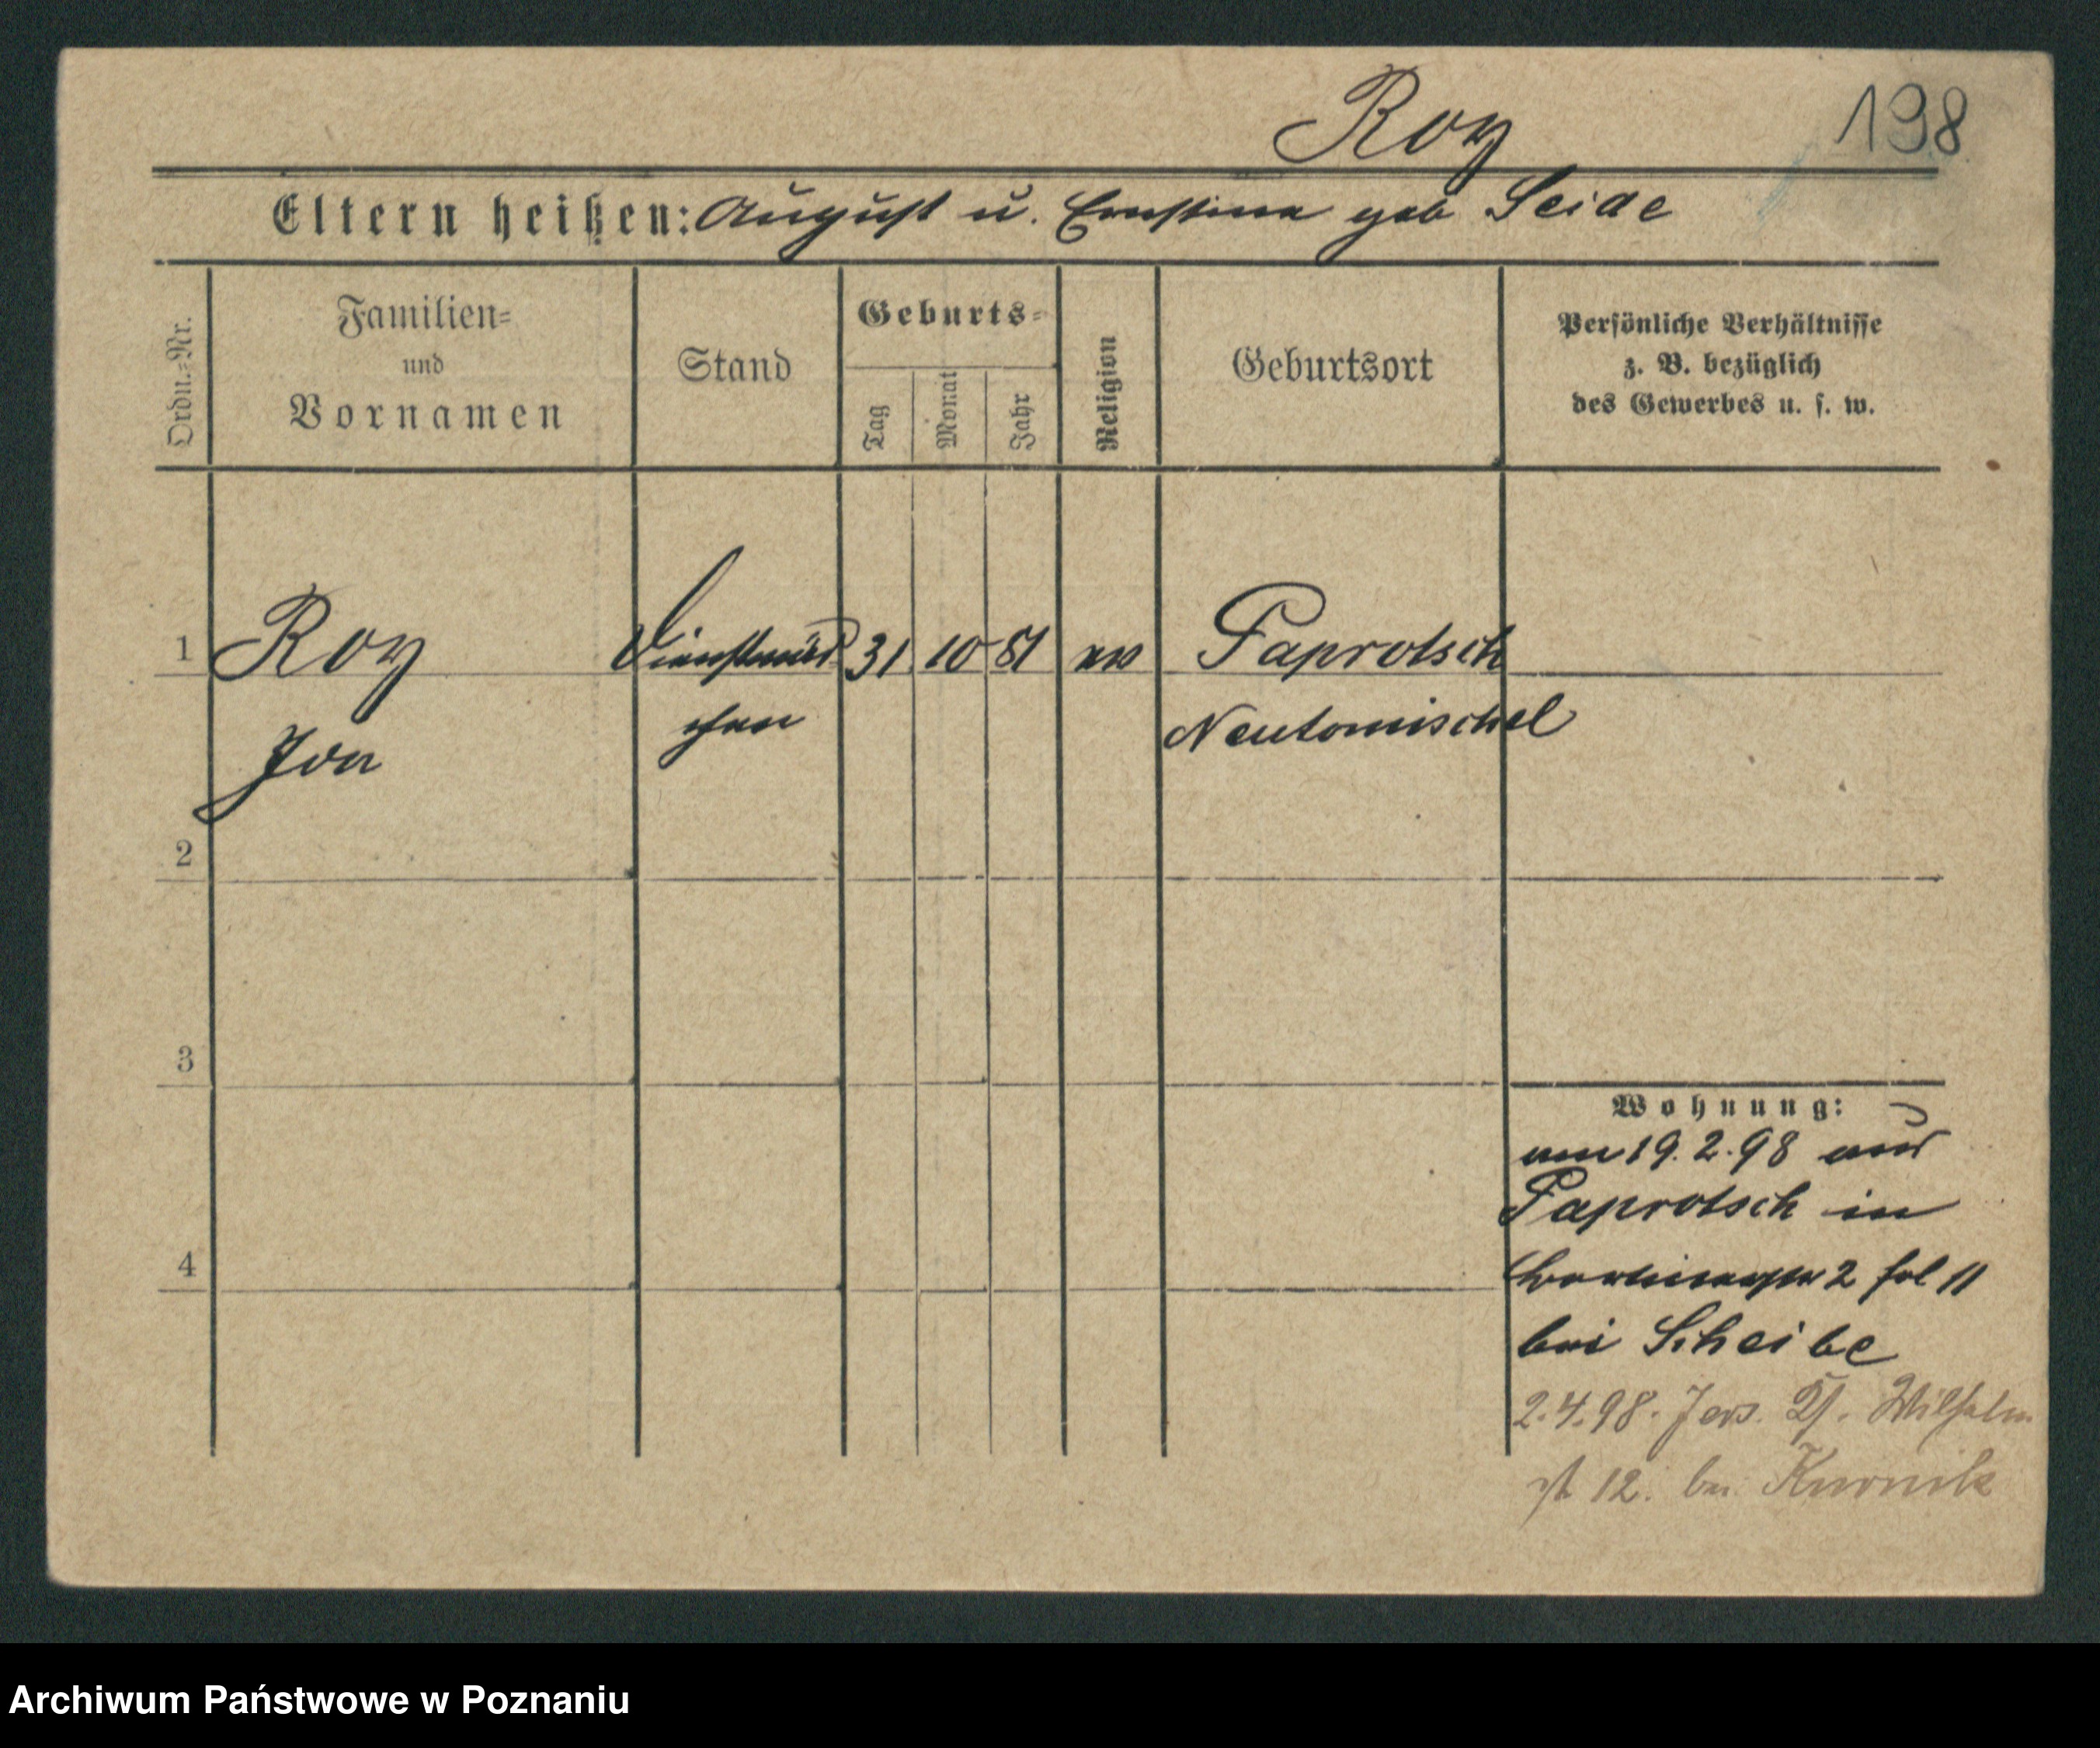 Roy
198
Eltern heißen: August u. Ernstina geb Seide
Ordn.=Nr.
Familien=
und
Vornamen
Stand
Geburts=
Tag
Monat
Jahr
Religion
Geburtsort
Persönliche Verhältnisse
z. B. bezüglich
des Gewerbes u. s. w.
1 Roy Dienstmäd 31 10 81 ev Paprotsch
Ida chen Neutomischel
2
3
4
Wohnung:
am 19.2.98 aus
Paprotsch in
2 fol 11
bei Scheibe
2.4.98. Jers. Wilhelm
st 12. bei Kurnik
Archiwum Państwowe w Poznaniu